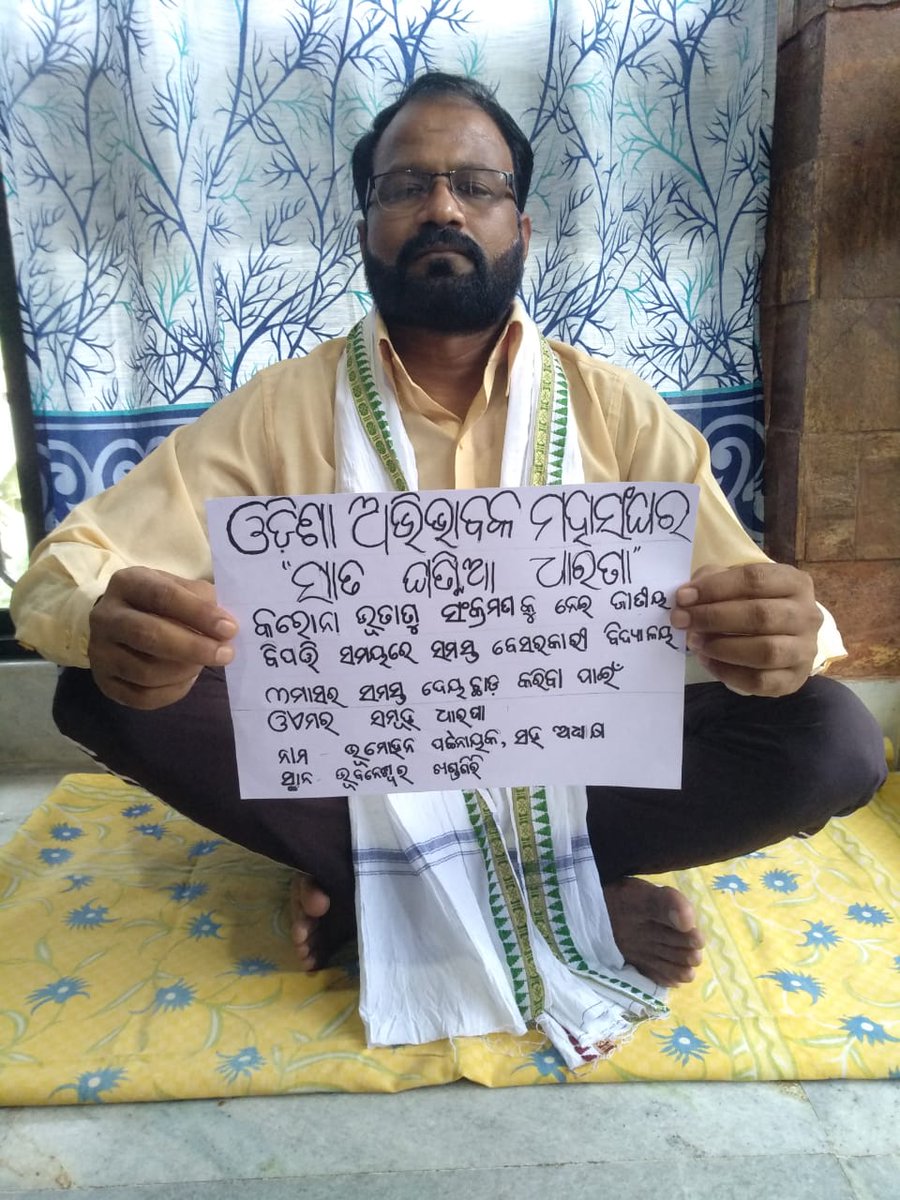 ଓଡ଼ିଶା ଅଭିଭାବକ ମହାସଂଘର
"ସାତ ଘଣ୍ଟିଆ ଧାରଣା"
କରୋନା ଭୂତାଣୁ ସଂକ୍ରମଣକୁ ନେଇ ଜାତୀୟ
ବିପତ୍ତି ସମୟରେ ସମସ୍ତ ବେସରକାରୀ ବିଦ୍ୟାଳୟ
୩ମାସର ସମସ୍ତ ଦେୟ ଛାଡ଼ କରିବା ପାଇଁ
ସମୂହ ଧାରଣା
ନାମ - ଭୂମୋହନ ପଟ୍ଟନାୟକ, ସହ ଅଧ୍ୟକ୍ଷ
ସ୍ଥାନ - ଭୁବନେଶ୍ୱର ଖଣ୍ଡଗିରି